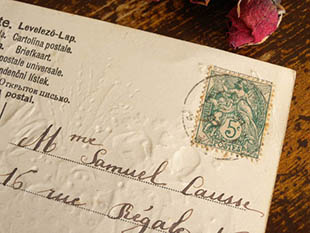 te. Levelező-Lap.
a. Cartolina postale.
Briefkaart.
postale universale.
ndenční lístek.
Открытое письмо.
postal.
5
POSTES
Mme Samuel
16 rue Régale